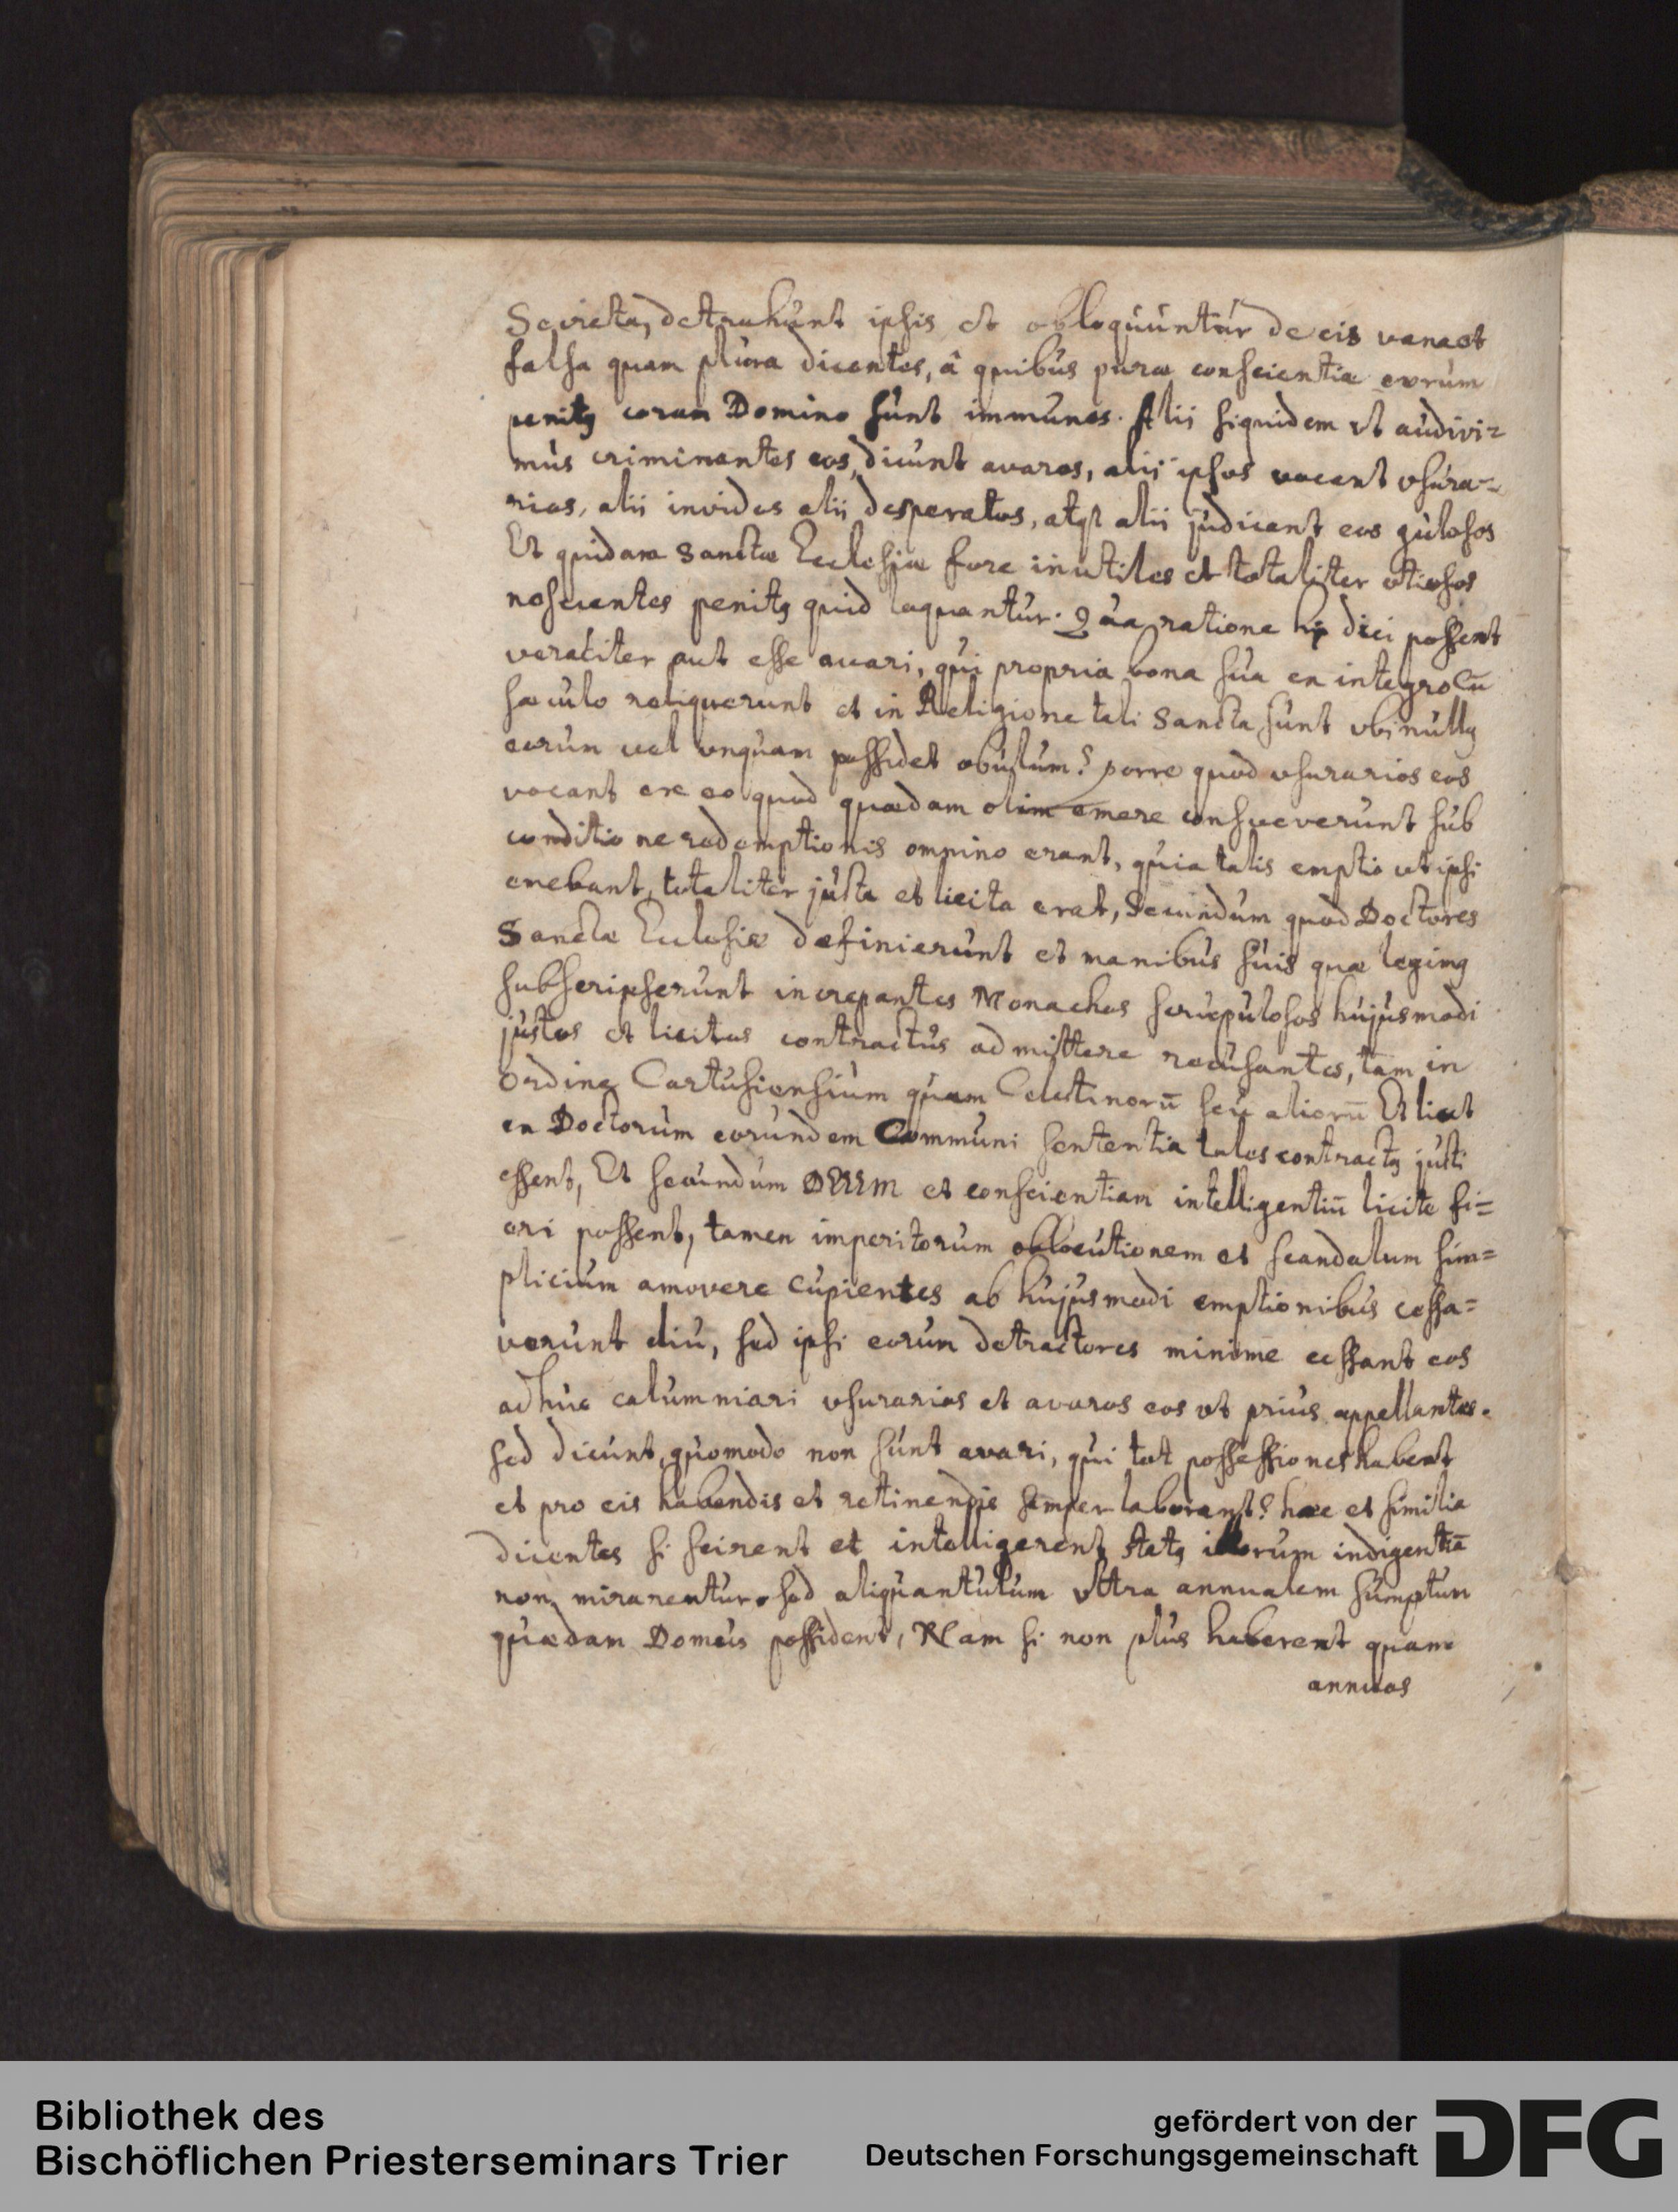 Secreta, detrahunt ipsis et obloquuntur de eis vana et
falsa quam plura dicentes, â quibus puræ conscientiæ eorum
penitꝰ coram Domino sunt immunes. Alii siquidem vt audivi=
mus criminantes eos, dicunt avaros, alii ipsos vocant vsura=
rios, alii invidos alii desperatos, atqꝫ alii judicant eos gulosos
Et quidam Sanctæ Ecclesiæ fore inutiles et totaliter otiosos
nescientes penitꝰ quid loquantur. Qua ratione hi dici possent
veraciter aut esse avari, qui propria bona sua ex integro cū
sæculo reliquerunt et in Religione tali Sancta sunt vbi nullꝰ
eorum vel vnquam possidet obulum? porro quod vsurarios eos
vocant ex eo quod quædam olim emere consueverunt sub
conditione redemptionis omnino erant, quia talis emptio ut ipsi
emebant, totaliter justa et licita erat, Secundum quod Doctores
Sanctæ Ecclesiæ definierunt et manibus suis quæ legimꝰ
subscripserunt increpantes Monachos scrupulosos hujusmodi
justos et licitos contractus admittere recusantes, tam in
Ordine Cartusiensium quam Celestinorū seu aliorū Et licet
ex Doctorum eorundem Communi sententia tales contractꝰ justi
essent, Et secundum DEUM et conscientiam intelligentiū licite fi=
eri possent, tamen imperitorum oblocutionem et scandalum sim=
plicium amovere cupientes ab hujusmodi emptionibus cessa=
verunt diu, sed ipsi eorum detractores minime cessant eos
adhuc calumniari vsurarios et avaros eos vt prius appellantes.
sed dicunt, quomodo non sunt avari, qui tot possessiones habent
et pro eis habendis et retinendis semper laborant? hæc et similia
dicentes si scirent et intelligerent statꝰ illorum indigentiā
non mirarentur. sed aliquantulum vltra annualem sumptum
quædam Domus possident, Nam si non plus haberent quam
annuos
Bibliothek des
Bischöflichen Priesterseminars Trier
gefördert von der
Deutschen Forschungsgemeinschaft
DFG